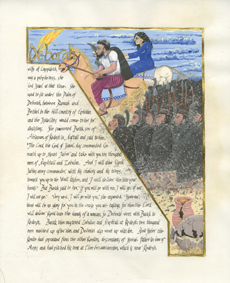 Deborah
wife of Lappidoth,
was a prophetess, she
led Israel at that time. She
used to sit under the Palm of
Deborah, between Ramah and
Bethel in the hill country of Ephraim,
and the Israelites would come to her for
decisions. She summoned Barak, son of
Abinoam, of Kedesh in Naphtali, and said to him,
"The Lord, the God of Israel, has commanded: Go
march up to Mount Tabor and take with you ten thousand
men of Naphtali and Zebulun. And I will draw Sisera
Jabin's army commander, with his chariots and his troops,
toward you up to the Wadi Kishon, and I will deliver him into your
hands." But Barak said to her, "If you will go with me, I will go; if not,
I will not go." "Very well, I will go with you," she answered. "However,
there will be no glory for you in the course you are taking, for then the Lord
will deliver Sisera into the hands of a woman." So Deborah went with Barak to
Kedesh. Barak then mustered Zebulun and Naphtali at Kedesh; ten thousand
men marched up after him; and Deborah also went up with him. And Heber the
Kenite had separated from the other Kenites, descendants of
and had pitched his tent at which is near Kedesh.